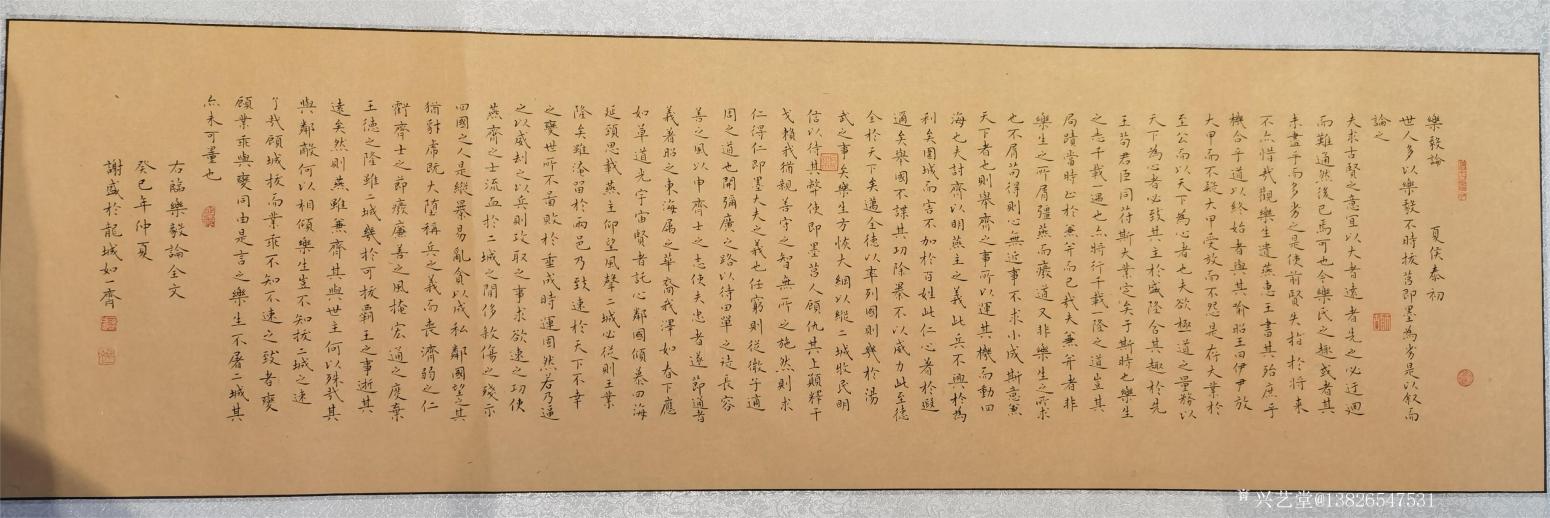 樂毅論 夏侯泰初
世人多以樂毅不時拔莒即墨為劣是以叙而
論之
夫求古賢之意宜以大者遠者先之必迂迴
而難通然後已焉可也今樂氏之趣或者其
未盡乎而多劣之是使前賢失指於將來
不亦惜哉觀樂生遺燕惠王書其殆庶乎
機合乎道以終始者與其喻昭王曰伊尹放
大甲而不疑大甲受放而不怨是存大業於
至公而以天下為心者也夫欲極道之量務以
天下為心者必致其主於盛隆合其趣於先
王苟君臣同符斯大業定矣于斯時也樂生
之志千載一遇也亦將行千載一隆之道豈其
局蹟當時止於兼并而已哉夫兼并者非
樂生之所屑彊燕而廢道又非樂生之所求
也不屑苟得則心無近事不求小成斯意兼
天下者也則舉齊之事所以運其機而動四
海也夫討齊以明燕主之義此兵不興於為
利矣圍城而害不加於百姓此仁心著於遐
邇矣舉國不謀其功除暴不以威力此至德
全於天下矣邁全德以率列國則幾於湯
武之事矣樂生方恢大綱以縱二城牧民明
信以待其弊使即墨莒人顧仇其上願釋干
戈賴我猶親善守之智無所之施然則求
仁得仁即墨大夫之義也任窮則從微子適
周之道也開彌廣之路以待田單之徒長容
善之風以申齊士之志使夫忠者遂節通者
義著昭之東海屬之華裔我澤如春下應
如草道光宇宙賢者託心鄰國傾慕四海
延頸思戴燕主仰望風聲二城必從則王業
隆矣雖淹留於兩邑乃致速於天下不幸
之變世所不圖敗於垂成時運固然若乃逼
之以威劫之以兵則攻取之事求欲速之功使
燕齊之士流血於二城之間侈殺傷之殘示
四國之人是縱暴易亂貪以成私鄰國望之其
猶豺虎既大墮稱兵之義而喪濟弱之仁
虧齊士之節廢廉善之風掩宏通之度棄
王德之隆雖二城幾於可拔霸王之事逝其
遠矣然則燕雖兼齊其與世主何以殊哉其
與鄰敵何以相傾樂生豈不知拔二城之速
了哉顧城拔而業乖不知不速之致者變
顧業乖與變同由是言之樂生不屠二城其
亦未可量也
右臨樂毅論全文
癸巳年仲夏
謝盛於龍城如一齋
兴艺堂@13826547531